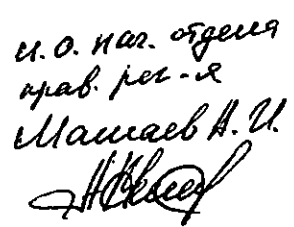 и.о. нач. отдела
прав. рег-я
Машаев А.И.